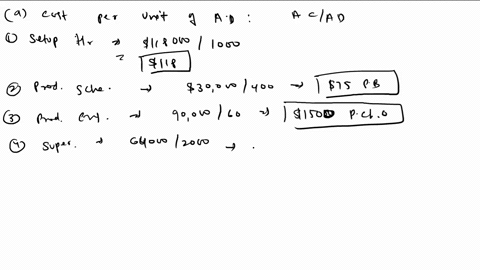 (a) Cost per unit of A.D : AC/AD
① Setup Hr → $118000 / 1000
= $118
② Prod. Sche. → $30,000 / 400 → $75 P.B
③ Prod. → 90,000 / 60 → $1500 P.Ch.O
④ Super. → 64000 / 2000 →